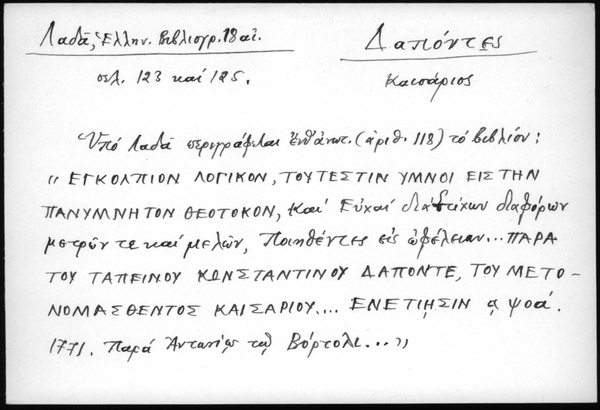 Λαδᾶ, Ἑλλην. Βιβλιογρ. 18 αἰ.
Δαπόντες
σελ. 123 καί 125.
Καισάριος
Ὑπό Λαδᾶ περιγράφεται ἐνθάνωτ. (ἀριθ. 118) τό βιβλίον:
" ΕΓΚΟΛΠΙΟΝ ΛΟΓΙΚΟΝ, ΤΟΥΤΕΣΤΙΝ ΥΜΝΟΙ ΕΙΣ ΤΗΝ
ΠΑΝΥΜΝΗΤΟΝ ΘΕΟΤΟΚΟΝ, καί Εὐχαί διά στίχων διαφόρων
μετρῶν τε καί μελῶν, Ποιηθέντες εἰς ὠφέλειαν... ΠΑΡΑ
ΤΟΥ ΤΑΠΕΙΝΟΥ ΚΩΝΣΤΑΝΤΙΝΟΥ ΔΑΠΟΝΤΕ, ΤΟΥ ΜΕΤΟ-
ΝΟΜΑΣΘΕΝΤΟΣ ΚΑΙΣΑΡΙΟΥ.... ΕΝΕΤΙῌΣΙΝ ᾳ ψοά.
1771. Παρά Ἀντωνίῳ τῷ Βόρτολι... "